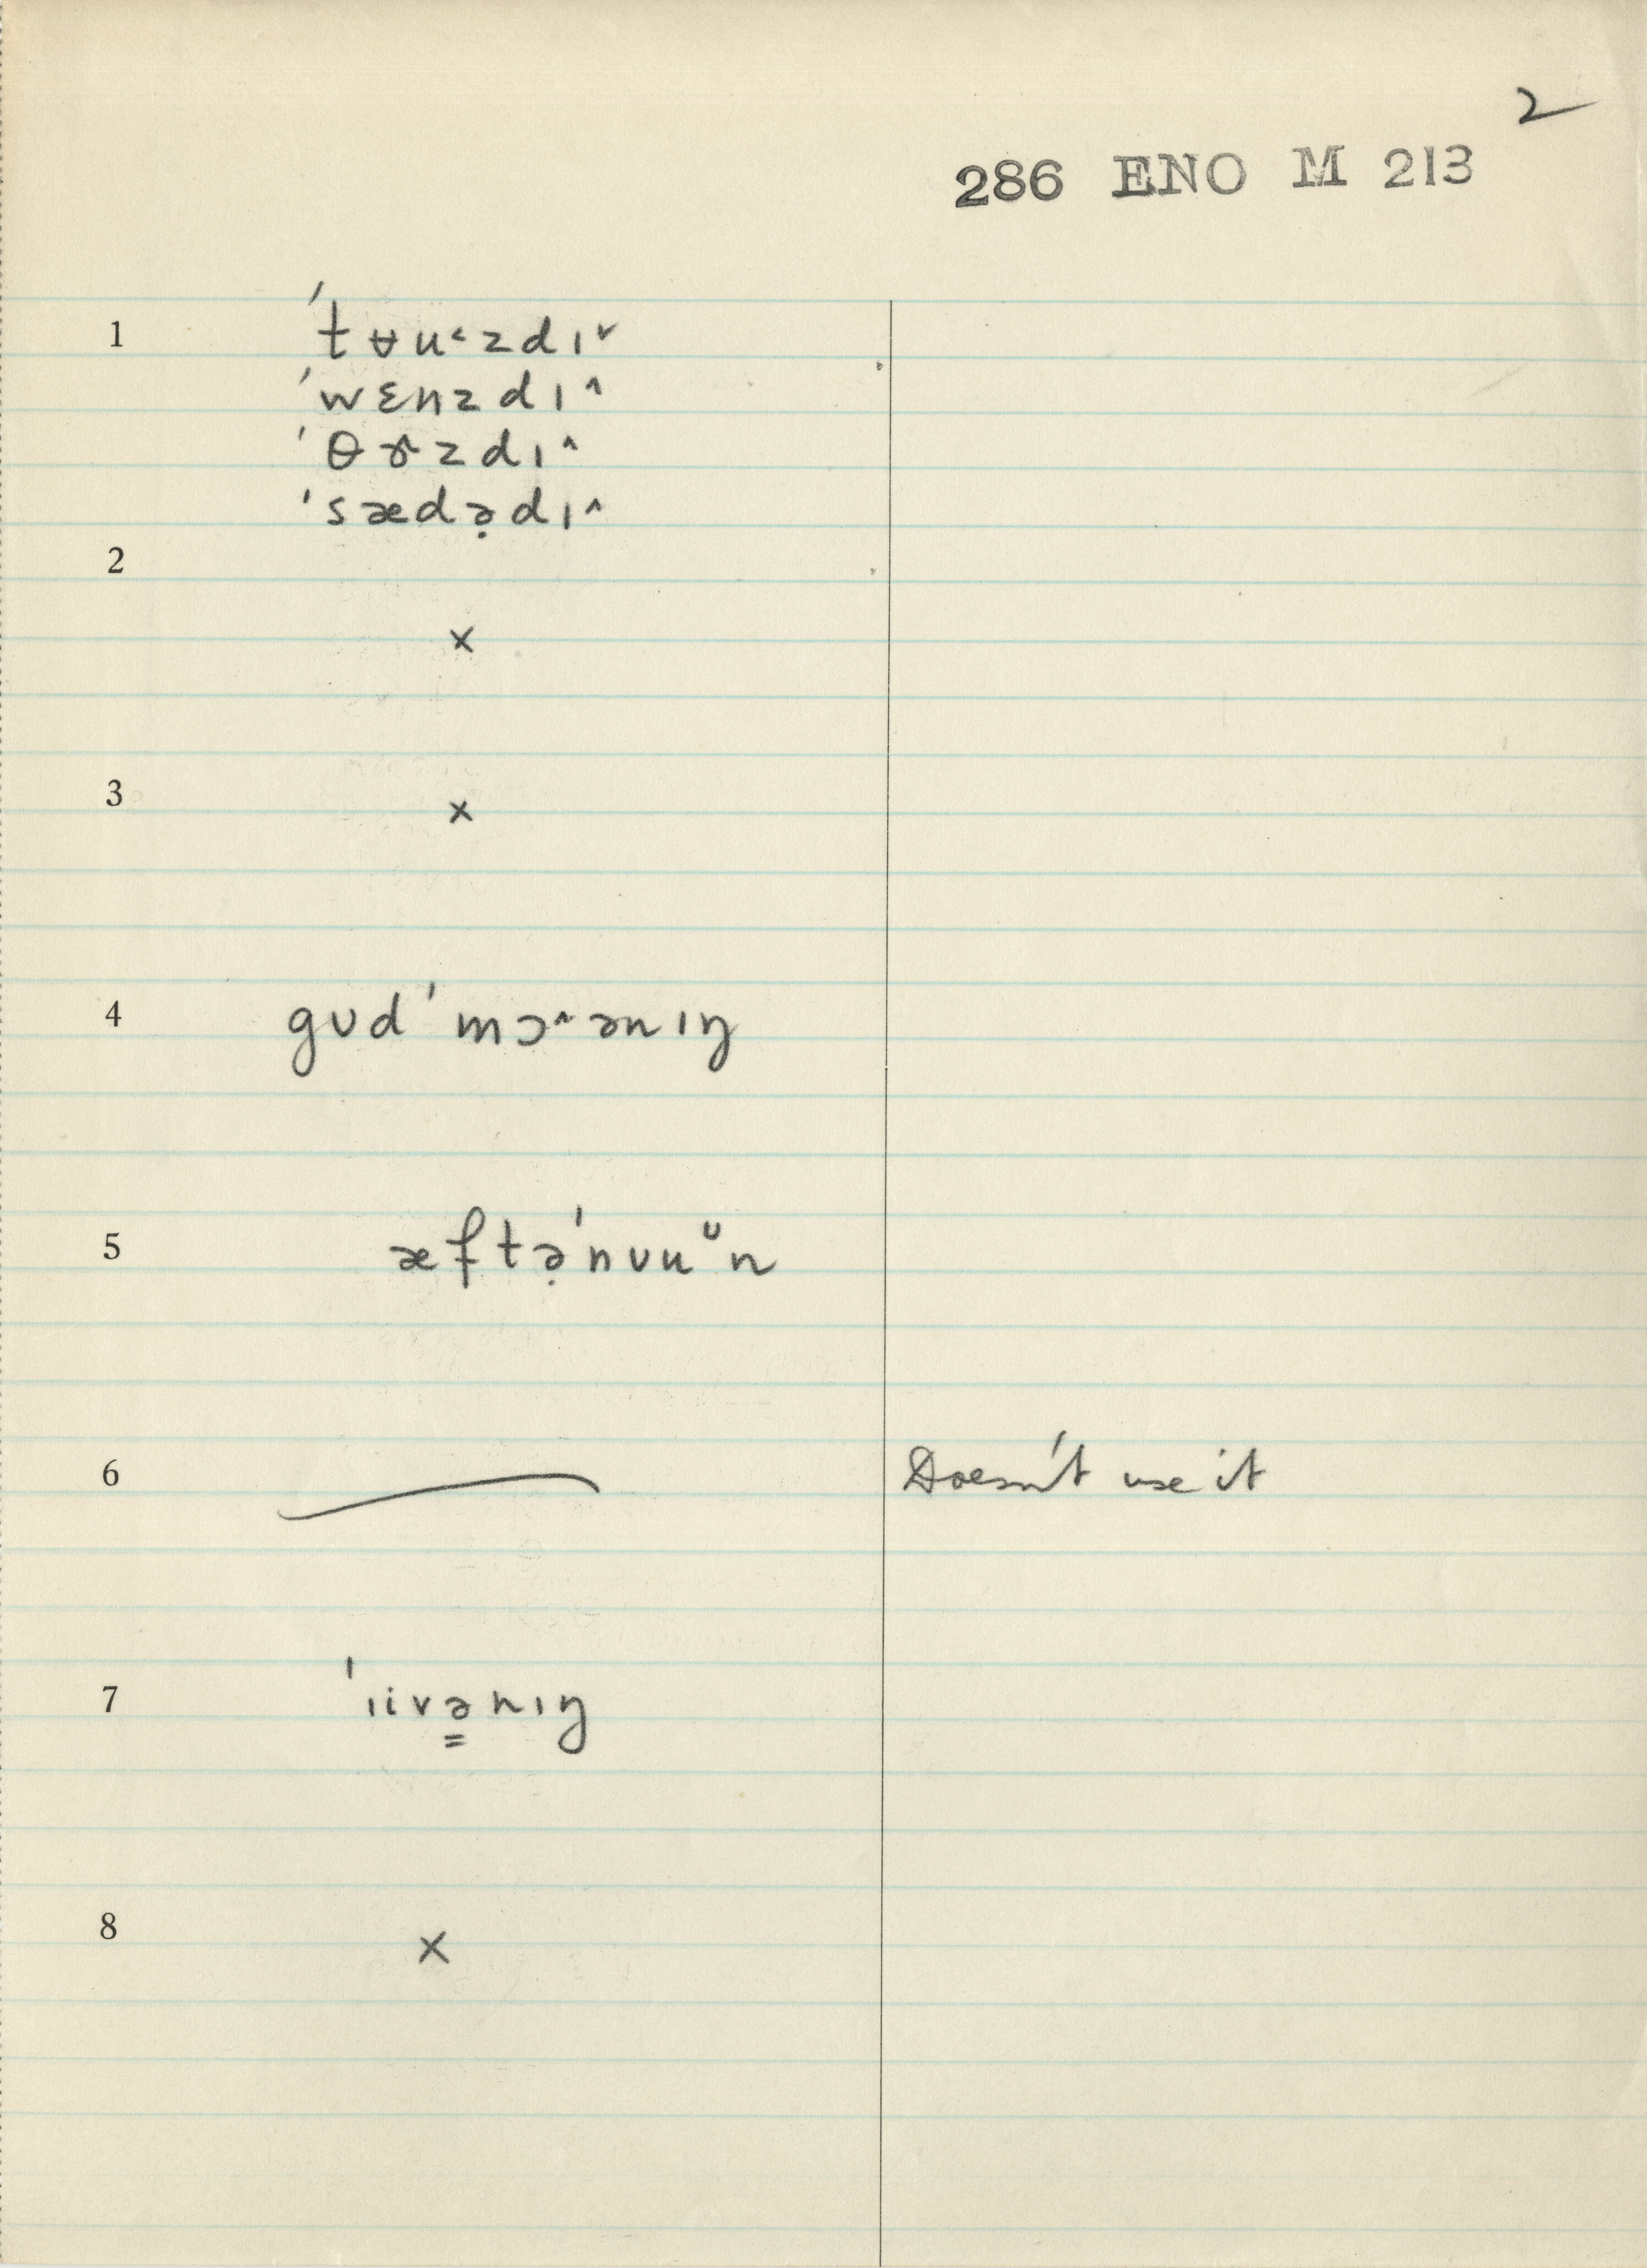 2
286 ENO M 213
1 ˈtʉu˂zdɪ˅
ˈwɛnzdɪ˄
ˈθɝzdɪ˄
ˈsædə̣dɪ˄
2
×
3 ×
4 gʊdˈmɔ˄ənɪŋ
5 æftə̣ˈnʊuᵕn
6 — Doesn't use it
7 ˈɪivə̳nɪŋ
8 ×